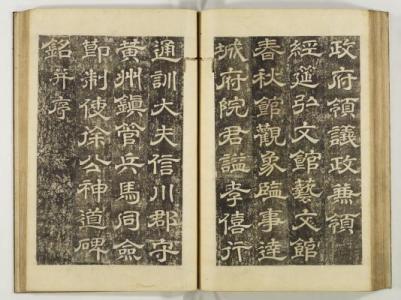 政府領議政兼領
經筵弘文館藝文館
春秋館觀象監事達
城府院君諡孝僖行
通訓大夫信川郡守
黃州鎮管兵馬同僉
節制使徐公神道碑
銘并序